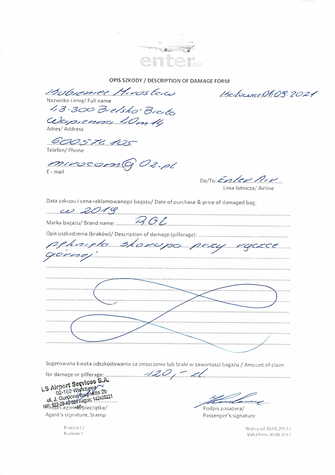 enter
OPIS SZKODY / DESCRIPTION OF DAMAGE FORM
Mirosław
Nazwisko i imię/ Full name
43-300 Bielsko Biała
Wapienna 40m14
Adres/ Address
Telefon/ Phone
E - mail
Do/To: Enter Air
Linia lotnicza/ Airline
Data zakupu i cena reklamowanego bagażu/ Date of purchase & price of damaged bag:
w 2019
Marka bagażu/ Brand name:
Opis uszkodzenia (braków)/ Description of damage (pilferage):
pęknięta skorupa przy rączce
górnej
Sugerowana kwota odszkodowania za zniszczenie lub braki w zawartości bagażu / Amount of claim
for damage or pilferage: 120,- zł
LS Airport Services S.A.
Podpis pasażera/
Agent's signature, stamp
Passenger's signature